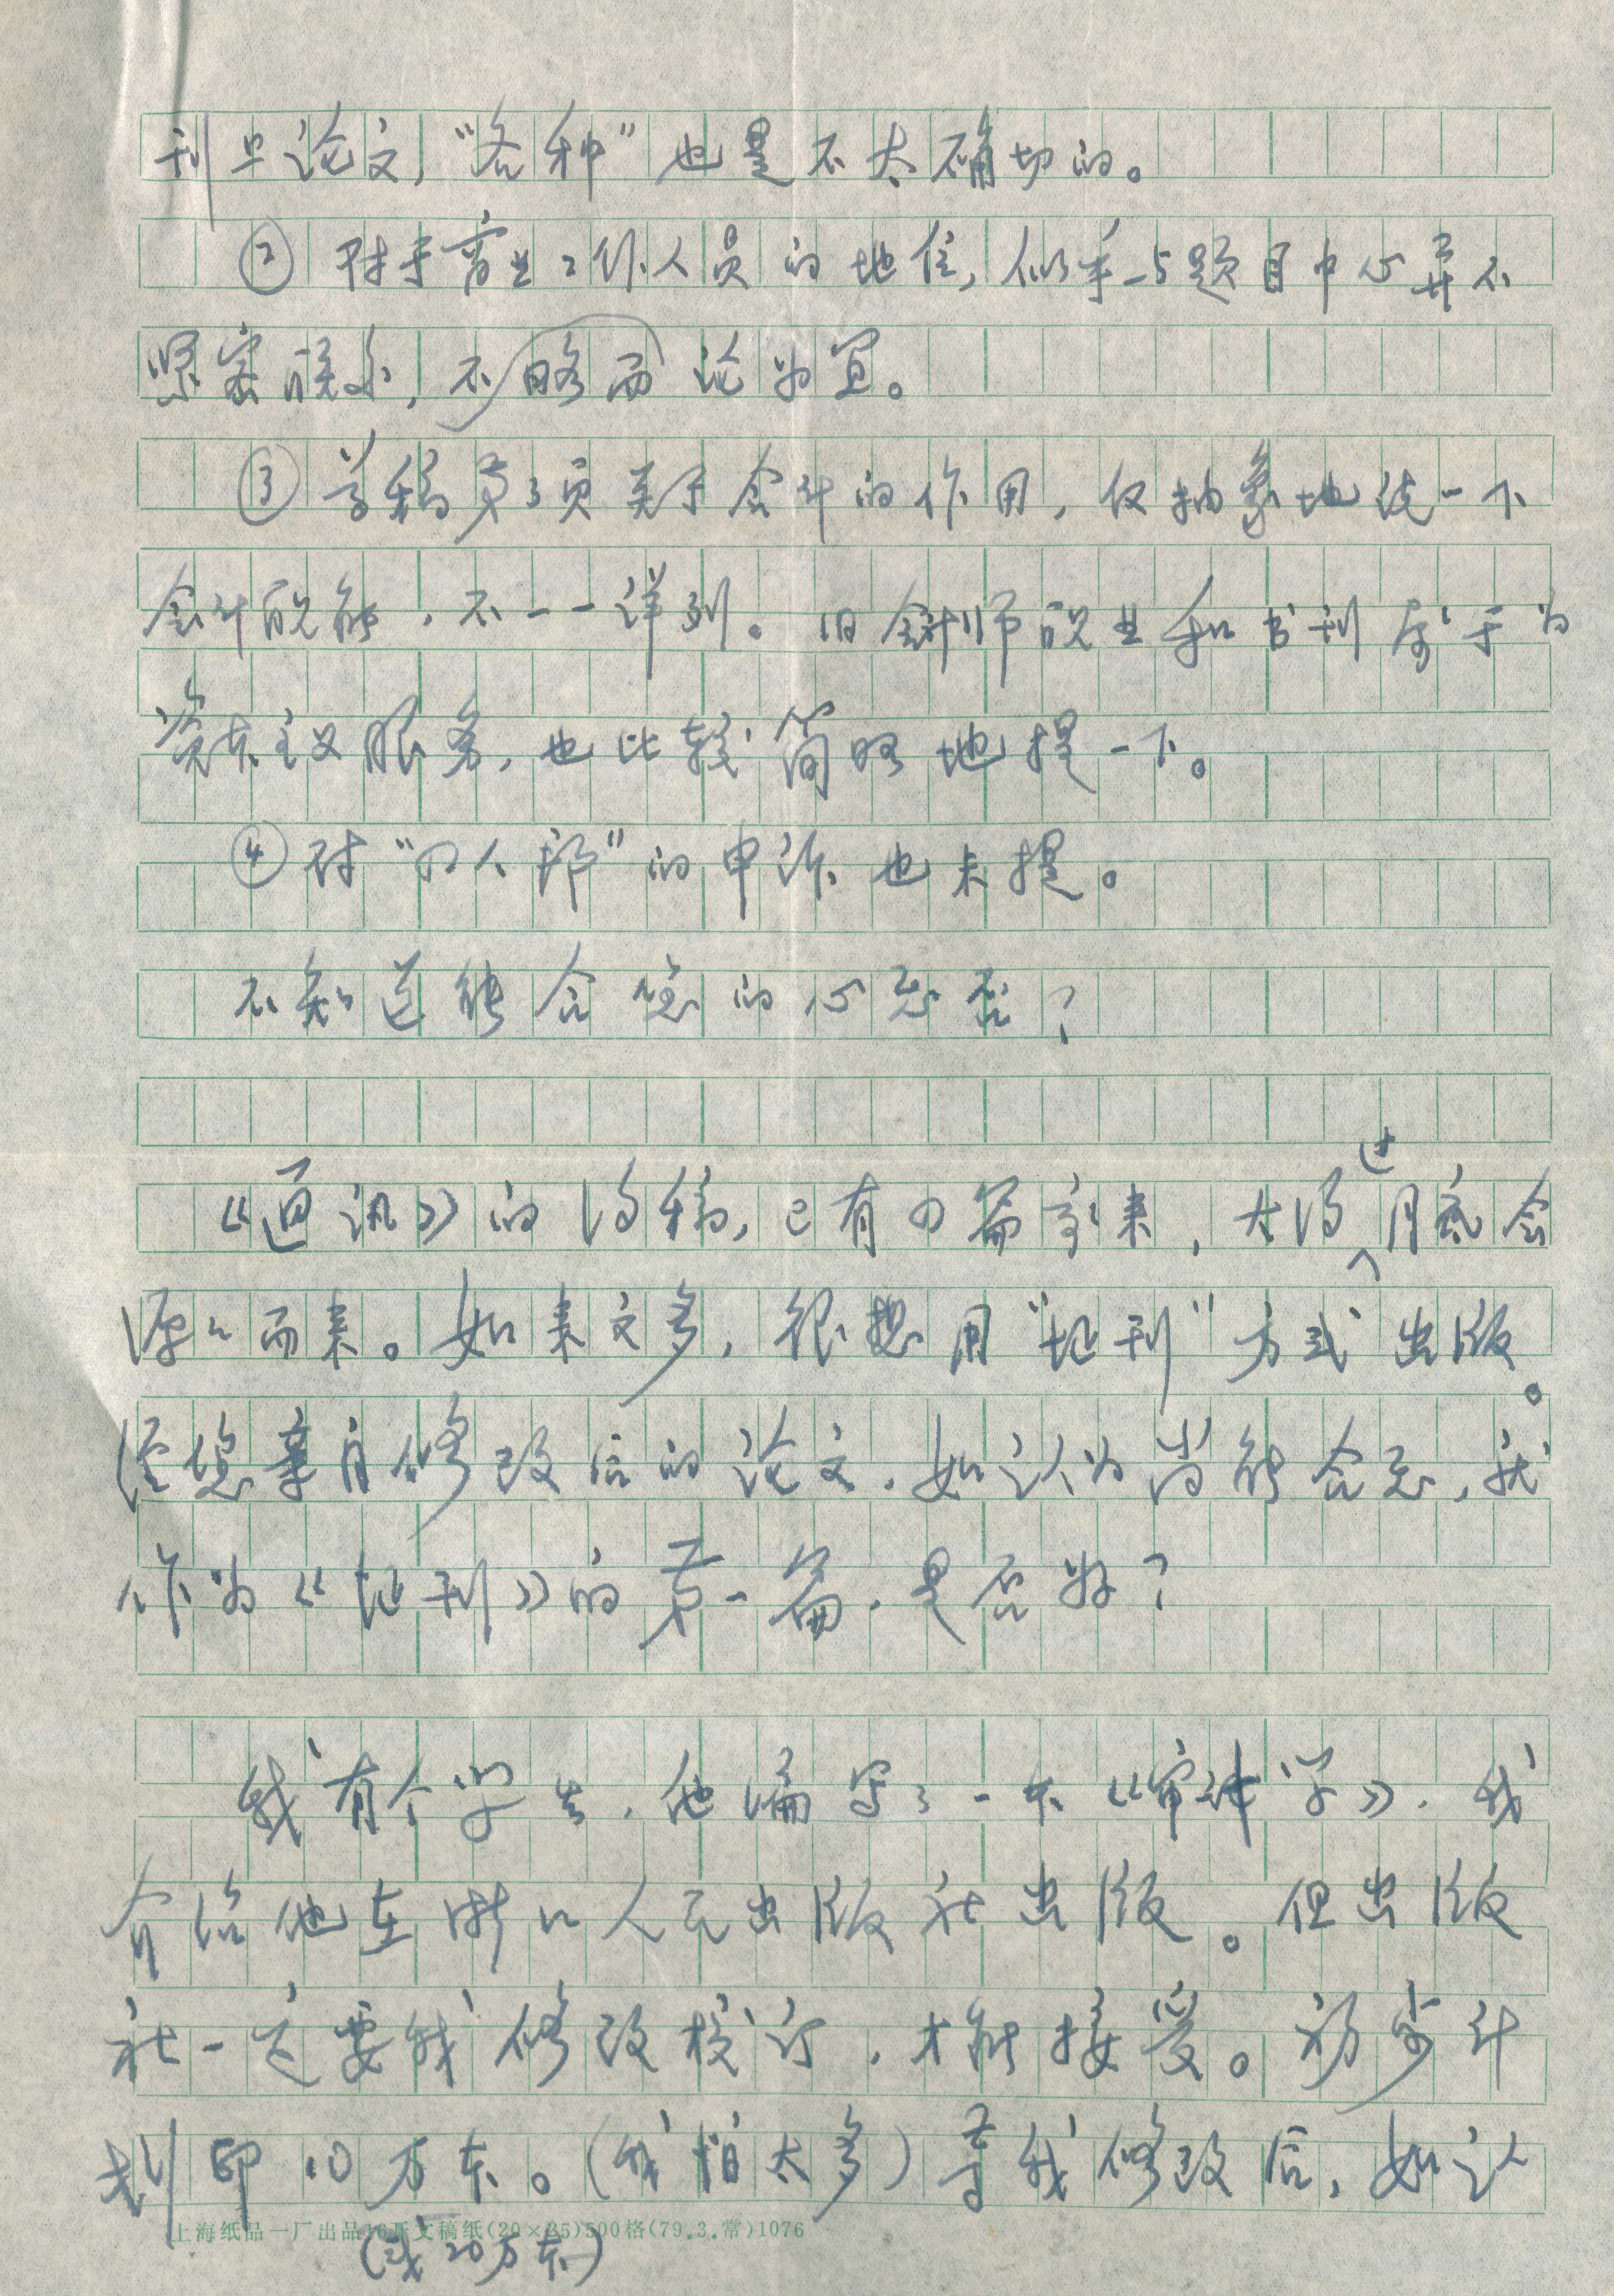 刊上论文，“各种”也是不太确切的。
② 对于商业工作人员的地位，似乎与题目中心并不
紧密联系，不略而论为宜。
③ 首稿第3页关于会计的作用，仅抽象地谈一下
会计职能，不一一详列。旧会计师职业和书刊属于为
资本主义服务，也比较简略地提一下。
④ 对“四人帮”的申诉也未提。
不知道能合您的心意否？
《通讯》的约稿，已有四篇寄来，大约过月底会
源源而来。如来文多，很想用“丛刊”方式出版。
经您亲自修改后的论文，如认为尚能合意，就
作为《丛刊》的第一篇，是否好？
我有个学生，他编写了一本《审计学》，我
介绍他在浙江人民出版社出版。但出版
社一定要我修改校订，才能接受。初步计
划印10万本。（我怕太多）等我修改后，如认
（或20万本）
上海纸品一厂出品16开文稿纸(20×25)500格(79.3.常)1076